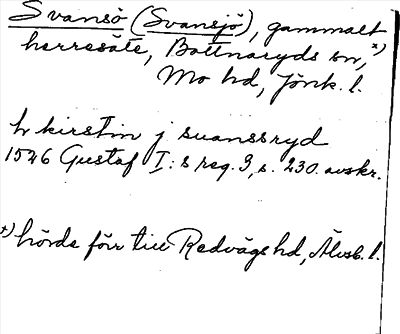 Svansö (Svansjö), gammalt
herresäte, Bottnaryds sn, x)
Mo hd, Jönk. l.
h kirstin j suanssryd
1546 Gustaf I:s reg. 3, s. 230. avskr.
x) hörde förr till Redvägs hd, Älvsb. l.